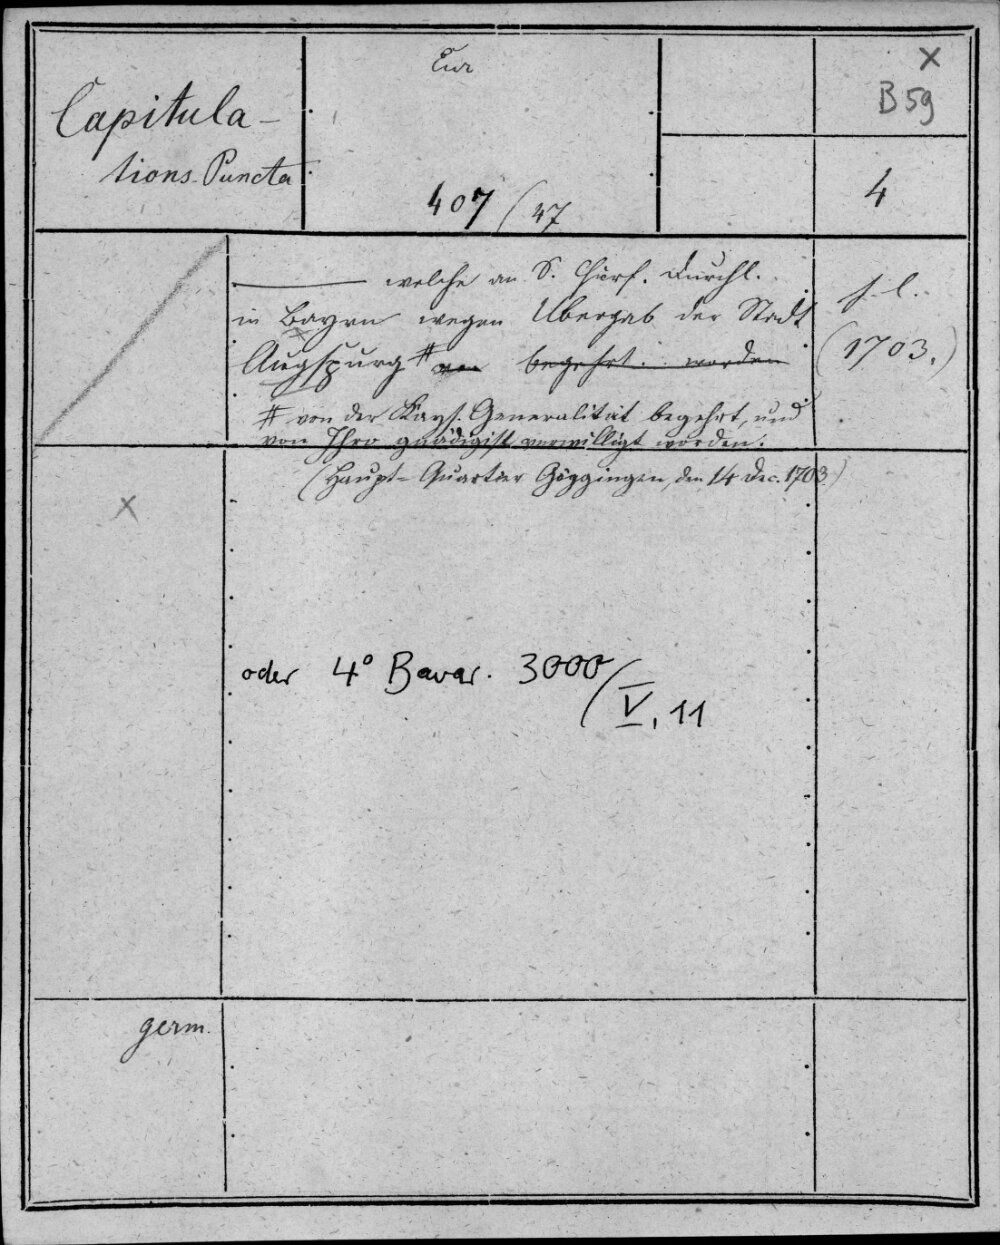 Capitula-
tions-Puncta
Eur
407/47
x
B 59
4
——— welche an S. Churf. Durchl.
in Bayrn wegen Ubergab der Stadt
Augspurg # von begehrt worden
# von der Kays. Generalität begehrt, und
von Ihro gnädigist verwilligt worden.
(Haupt-Quartier Göggingen, den 14 Dec. 1703.)
s. l.
(1703.)
x
oder 4° Bavar. 3000/
V, 11
germ.